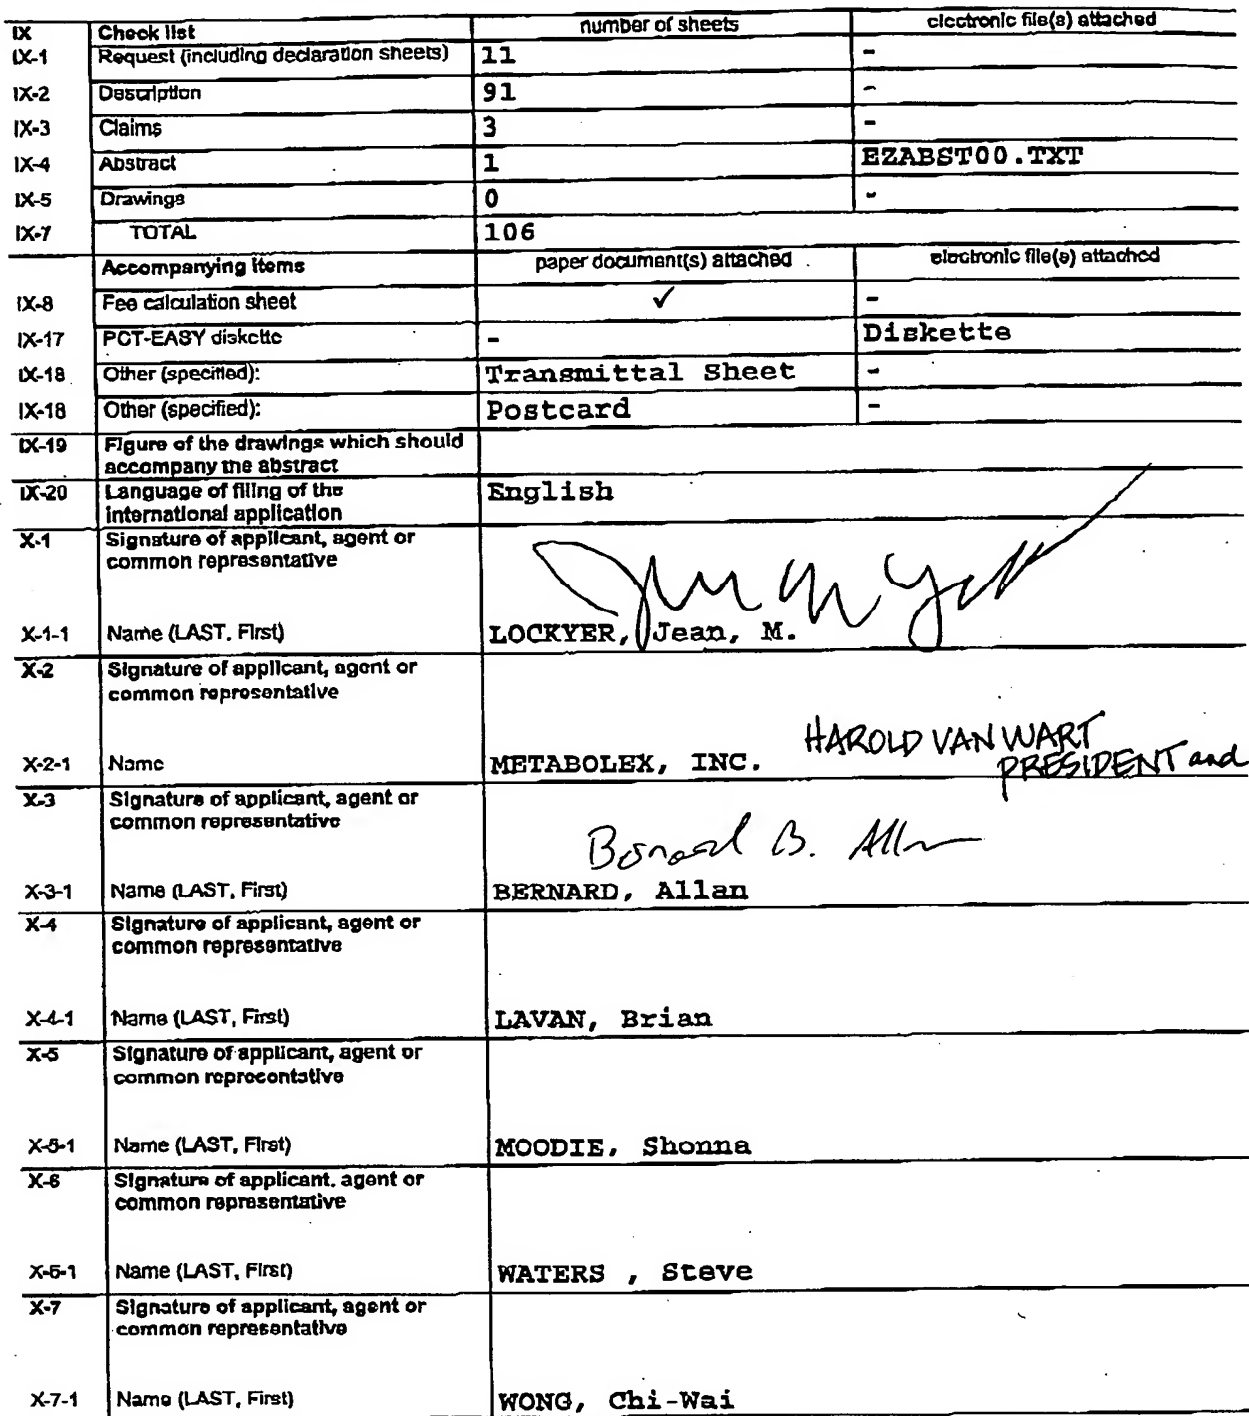 IX Check list number of sheets electronic file(s) attached
IX-1 Request (including declaration sheets) 11 -
IX-2 Description 91 -
IX-3 Claims 3 -
IX-4 Abstract 1 EZABST00.TXT
IX-5 Drawings 0 -
IX-7 TOTAL 106
Accompanying items paper document(s) attached electronic file(s) attached
IX-8 Fee calculation sheet ✓ -
IX-17 PCT-EASY diskette - Diskette
IX-18 Other (specified): Transmittal Sheet -
IX-18 Other (specified): Postcard -
IX-19 Figure of the drawings which should
accompany the abstract
IX-20 Language of filing of the English
international application
X-1 Signature of applicant, agent or
common representative
X-1-1 Name (LAST, First) LOCKYER, Jean, M.
X-2 Signature of applicant, agent or
common representative
HAROLD VAN WART
X-2-1 Name METABOLEX, INC. PRESIDENT and
X-3 Signature of applicant, agent or
common representative
Bernard B. Allan
X-3-1 Name (LAST, First) BERNARD, Allan
X-4 Signature of applicant, agent or
common representative
X-4-1 Name (LAST, First) LAVAN, Brian
X-5 Signature of applicant, agent or
common representative
X-5-1 Name (LAST, First) MOODIE, Shonna
X-6 Signature of applicant, agent or
common representative
X-6-1 Name (LAST, First) WATERS , Steve
X-7 Signature of applicant, agent or
common representative
X-7-1 Name (LAST, First) WONG, Chi-Wai